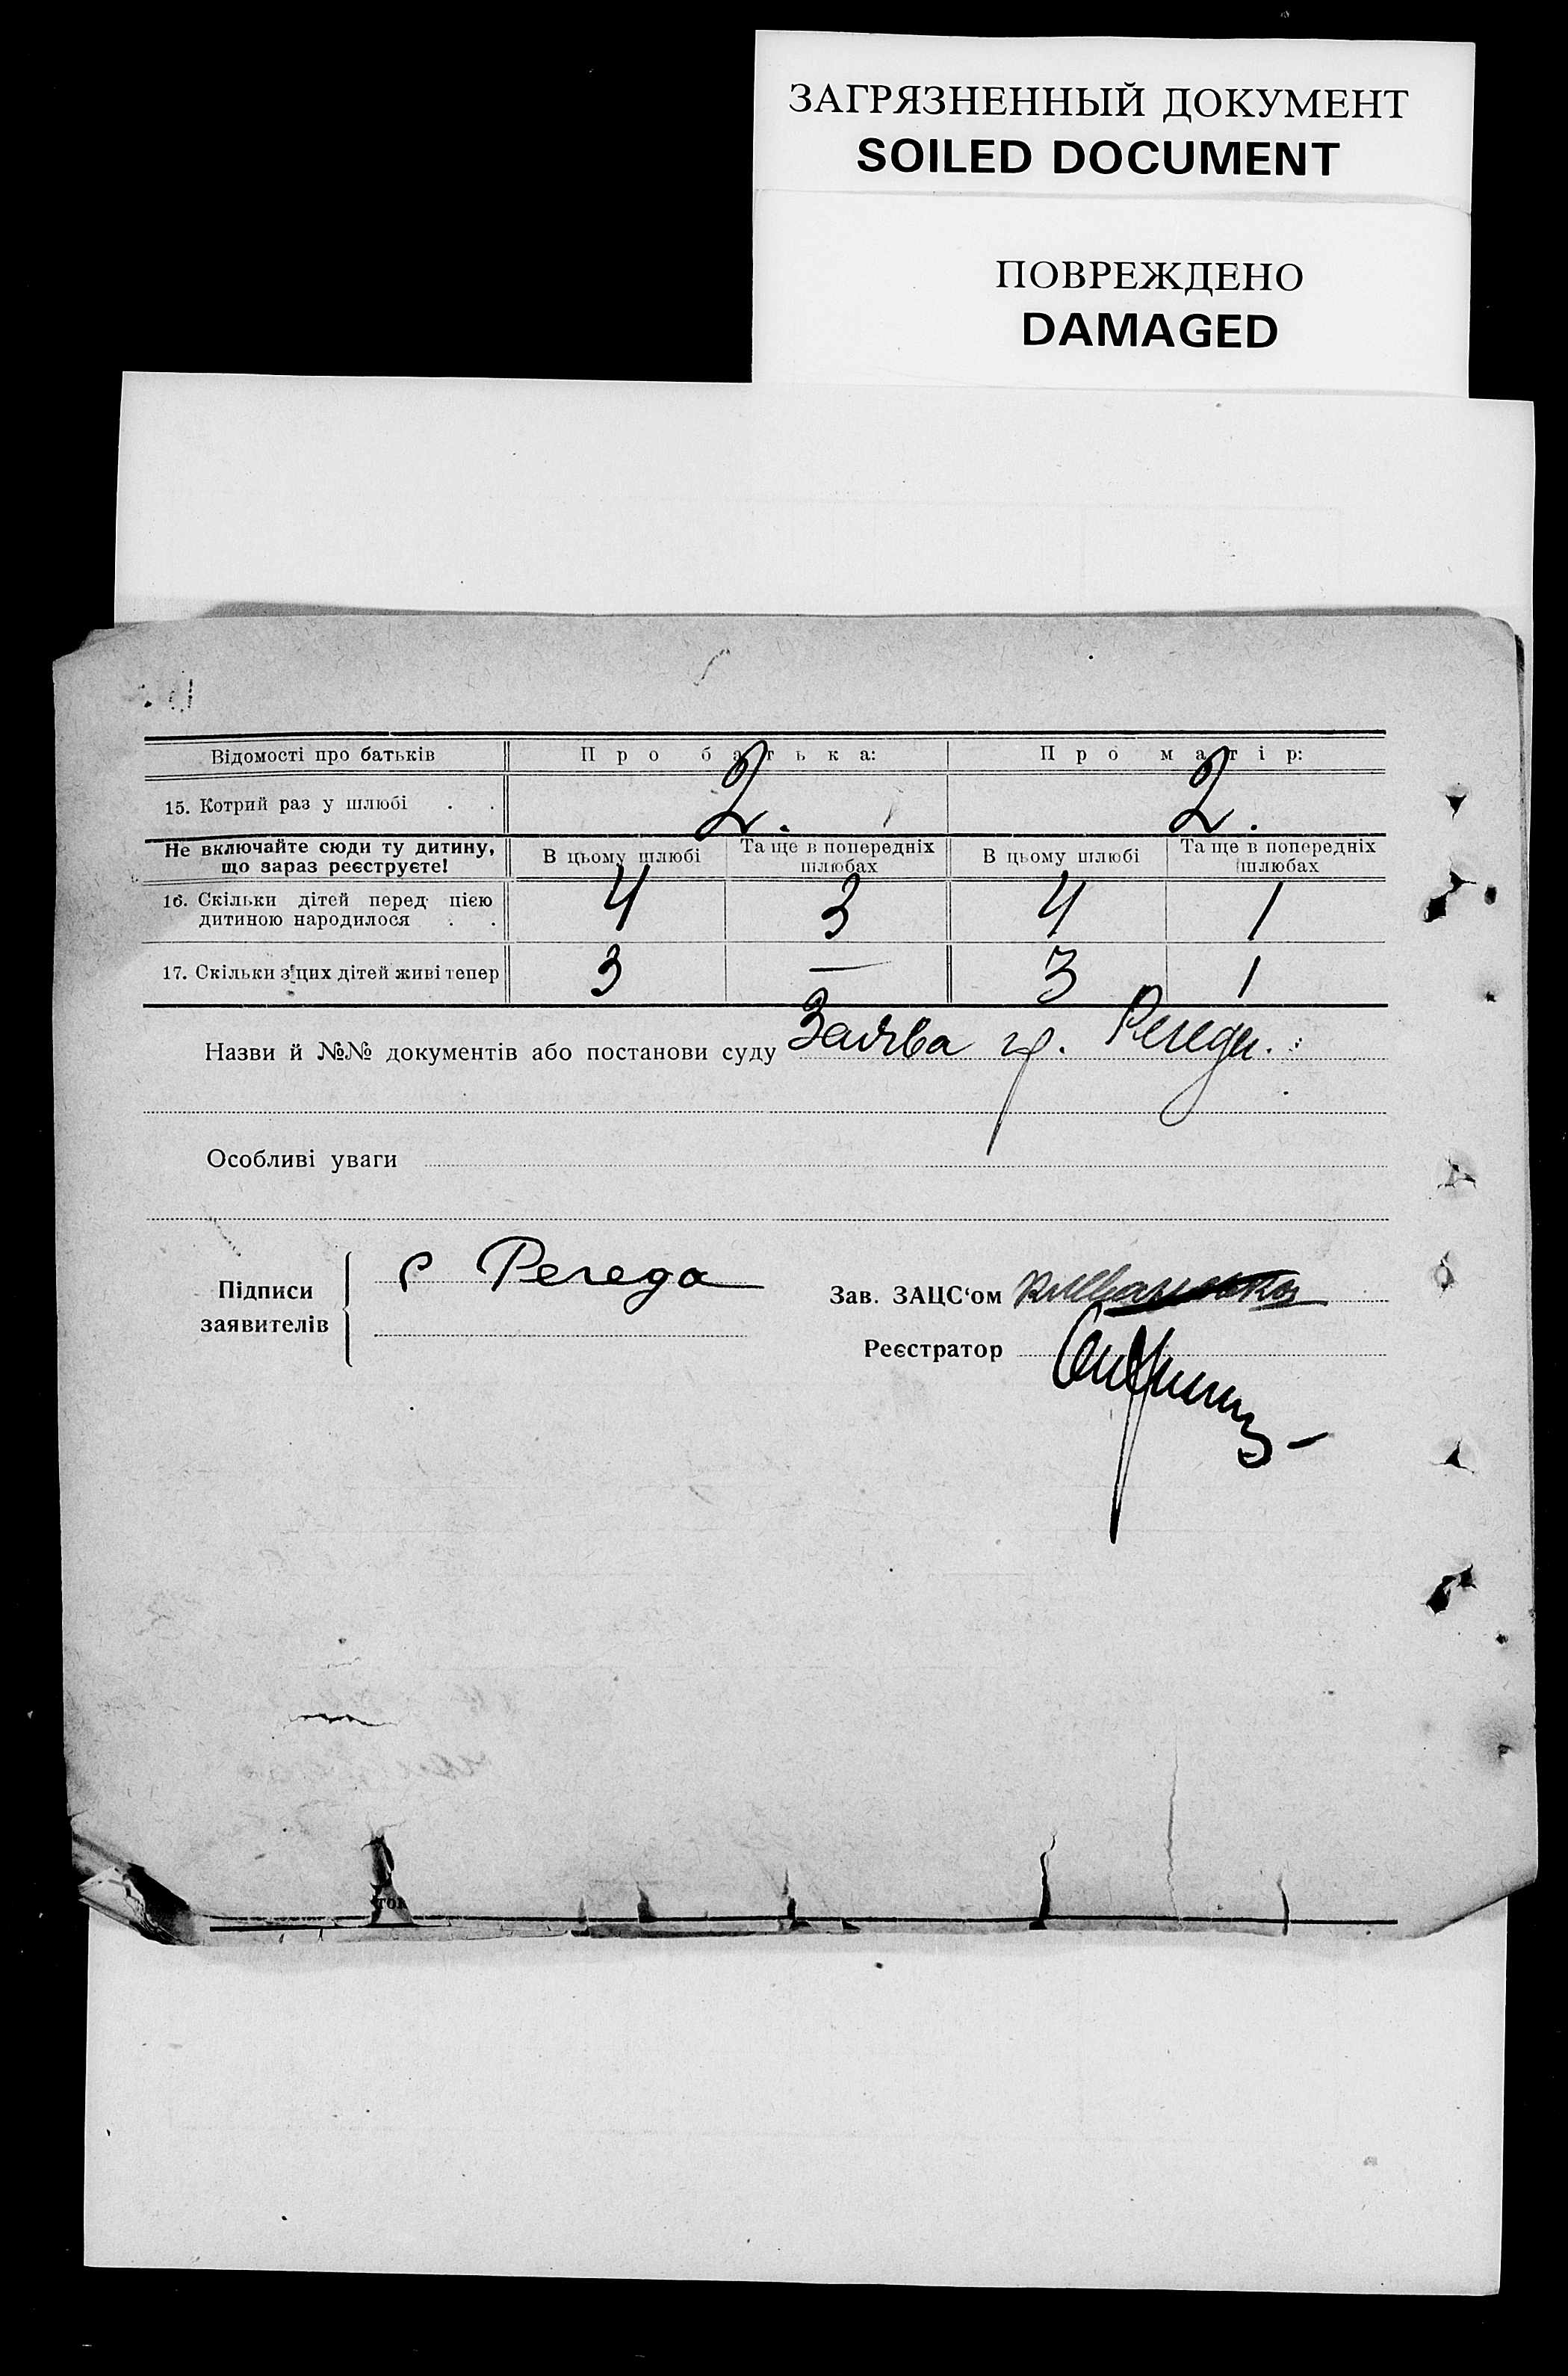 ЗАГРЯЗНЕННЫЙ ДОКУМЕНТ
SOILED DOCUMENT
ПОВРЕЖДЕНО
DAMAGED
Відомості про батьків Про батька: Про матір:
15. Котрий раз у шлюбі . . 2. 2.
Не включайте сюди ту дитину, що зараз реєструєте! В цьому шлюбі Та ще в попередніх шлюбах В цьому шлюбі Та ще в попередніх шлюбах
16. Скільки дітей перед цією дитиною народилося . . 4 3 4 1
17. Скільки з цих дітей живі тепер 3 — 3 1
Назви й №№ документів або постанови суду Заява гр. Регеди.
Особливі уваги
Підписи заявителів
Регеда
Зав. ЗАЦС'ом
Реєстратор